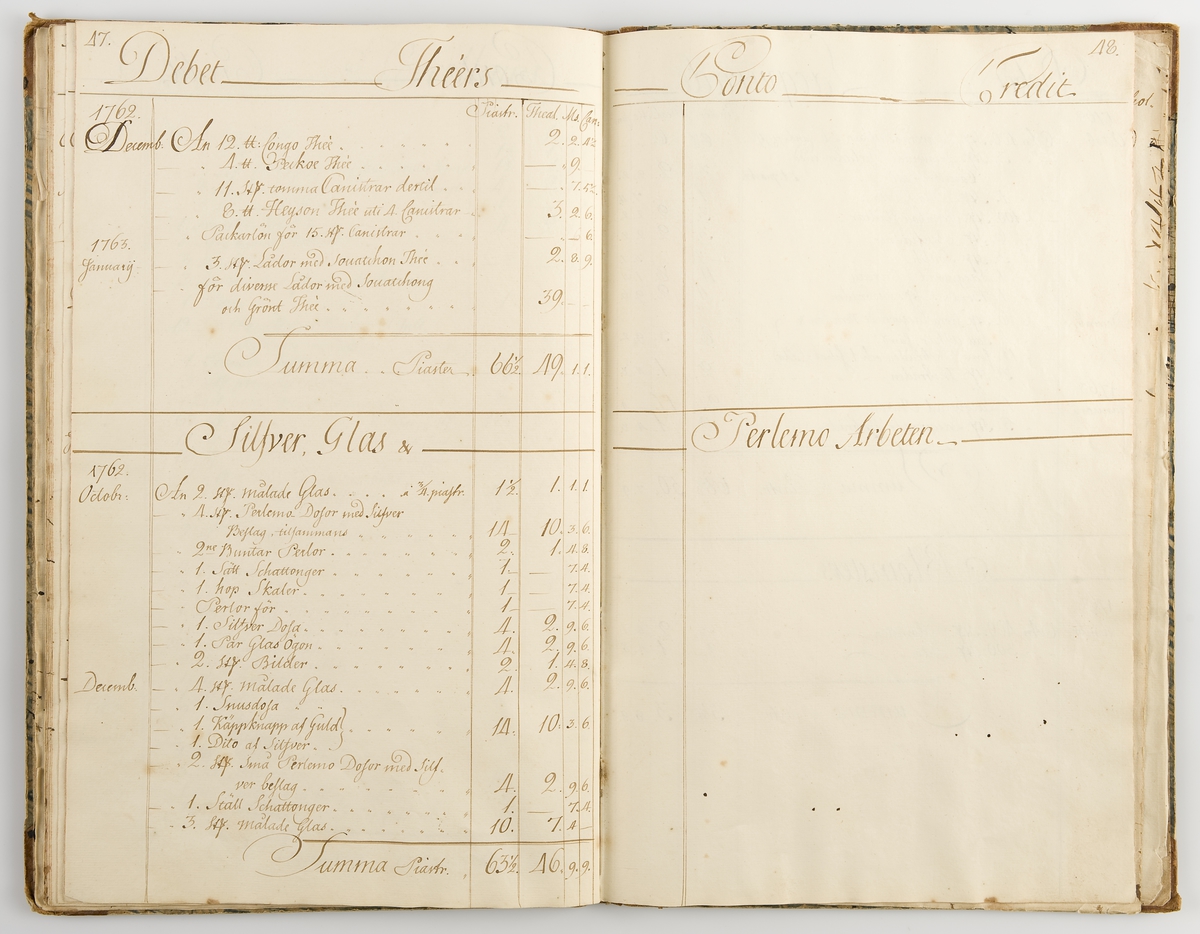 47.
Debet Théers
1762. Piastr. Theal. Ms. Can:
Decemb. An 12. tt: Congo Thée 2. 2. 4½
4. tt. Peckoe Thée — 9. —
11. st. tomma Canistrar dertil — 7. 5½
8. tt. Heyson Thée uti 4. Canistrar 3. 2. 6.
Packarlön för 15. st. Canistrar — — 6.
1763.
Januarij 3. st. Lådor med Souatchon Thée 2. 8. 9.
för diverse Lådor med Souatchong
och Grönt Thée 39. — —
Summa Piaster 66½ 49. 1. 1.
Silfver, Glas &
1762.
Octobr: An 2. st. målade Glas. à ¾ piastr. 1½ 1. 1. 1.
4. st. Perlemo Dosor med Silfver
Beslag tilsammans 14. 10. 3. 6.
2ne Buntar Perlor 2. 1. 4. 8.
1. Sätt Schattonger 1. — 7. 4.
1. hop Skaler 1. — 7. 4.
Perlor för 1. — 7. 4.
1. Silfver Dosa 4. 2. 9. 6.
1. Par Glas Ögon 4. 2. 9. 6.
2. st. Bilder 2. 1. 4. 8.
Decemb. 4. st. målade Glas. 4. 2. 9. 6.
1. Snusdosa
1. Käppknapp af Guld 14. 10. 3. 6.
1. Dito af Silfver
2. st. små Perlemo Dosor med Silf-
ver beslag 4. 2. 9. 6.
1. Ställ Schattonger 1. — 7. 4.
3. st. målade Glas. 10. 7. 4 —
Summa Piastr. 63½ 46. 9. 9.
48.
Conto Credit
Perlemo Arbeten